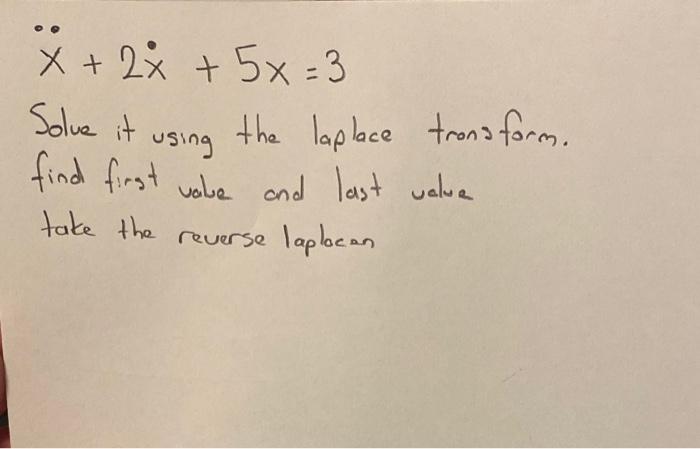 ẍ + 2ẋ + 5x = 3
Solve it using the laplace transform.
find first value and last value
take the reverse laplacan